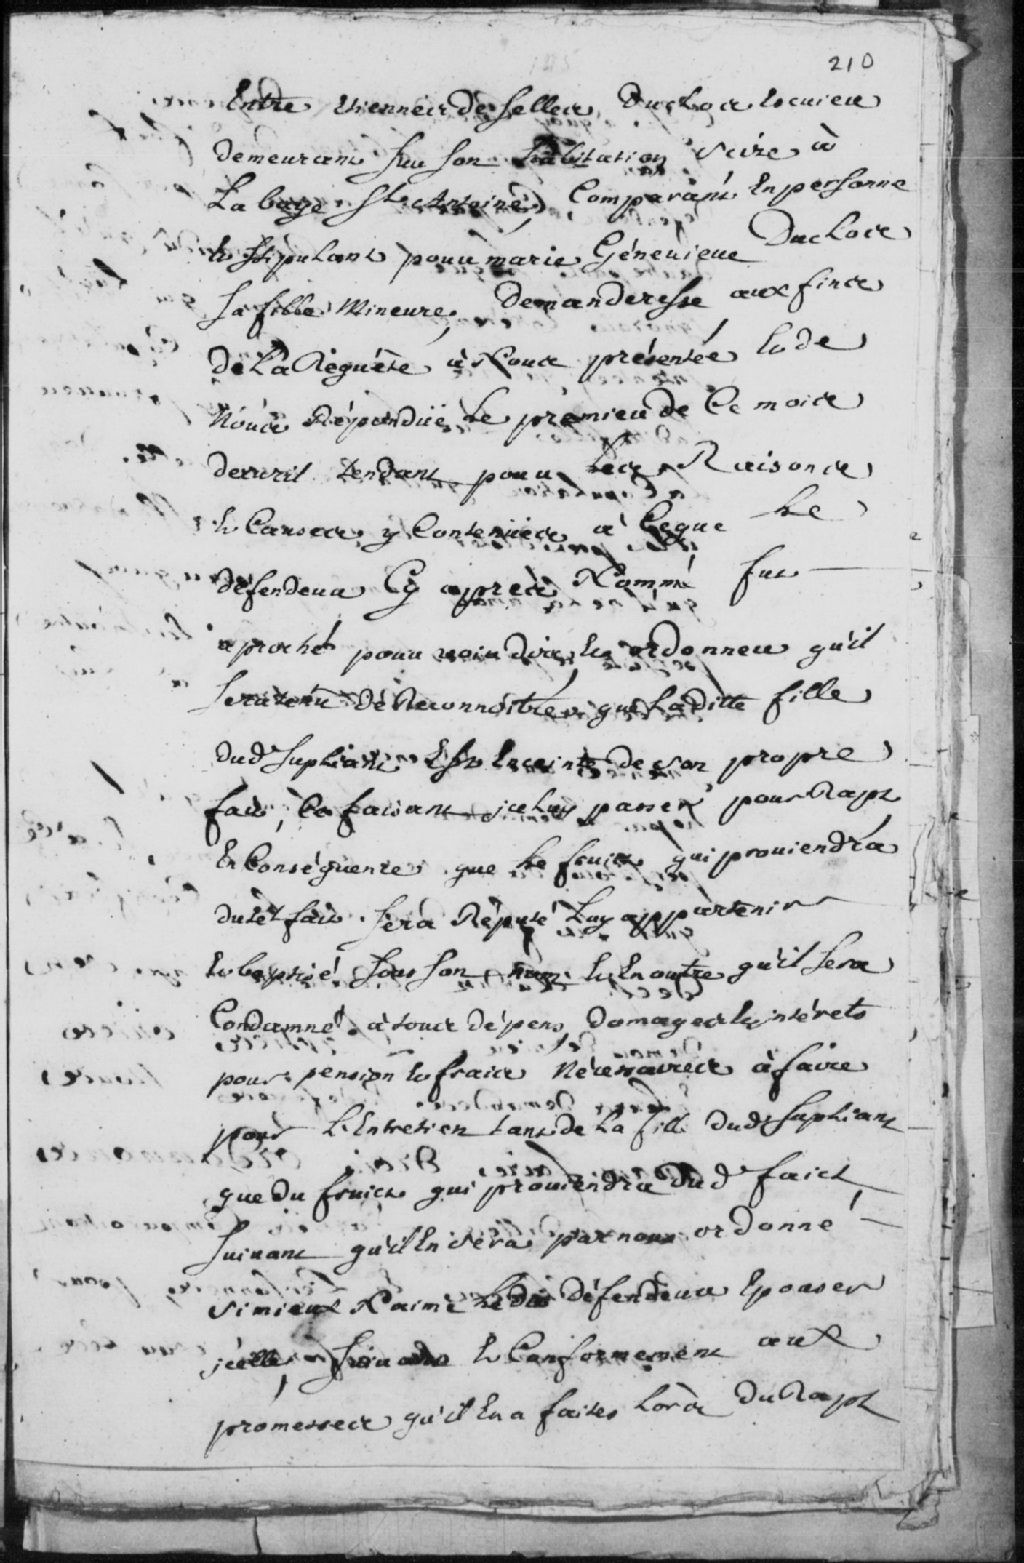 210
Entre Etienne de Selles Duclos Escuier
demeurant sur son habitation scize à
La baye St Antoine, Comparant En personne
Et stipulant pour marie Génevieve Duclos
sa fille Mineure, Demanderesse aux fins
de La Requéte à Nous présentée Et de
Nous Répondüe Le premier de Ce mois
davril tendant pour Les Raisons
Et Causes y Contenües a Ceque Le
défendeur Cy aprés Nommé fut
aproché pour voir dire, Et ordonner qu'il
sera tenu de Reconnoitre que Laditte fille
dud suppliant Est Enceinte de son propre
fait, Ce faisant icelluy passer pour Rapt
En Conséquence que Le fruict qui proviendra
dudet fait sera Réputé Luy appartenir
Et baptisé sous son nom Et En outre qu'il sera
Condamné a tous dépens, domages Et intérets
pour pension Et frais Nécessaires à faire
pour L'Entretien tant de La fille dud Supliant
que du fruict qui proviendra dud faict,
suivant qu'il En sera par nous ordonné
si mieux N'aime Ledit défendeur Epouser
jcelle, suivant Et Conformement aux
promesses qu'il En a faites Lors du Rapt